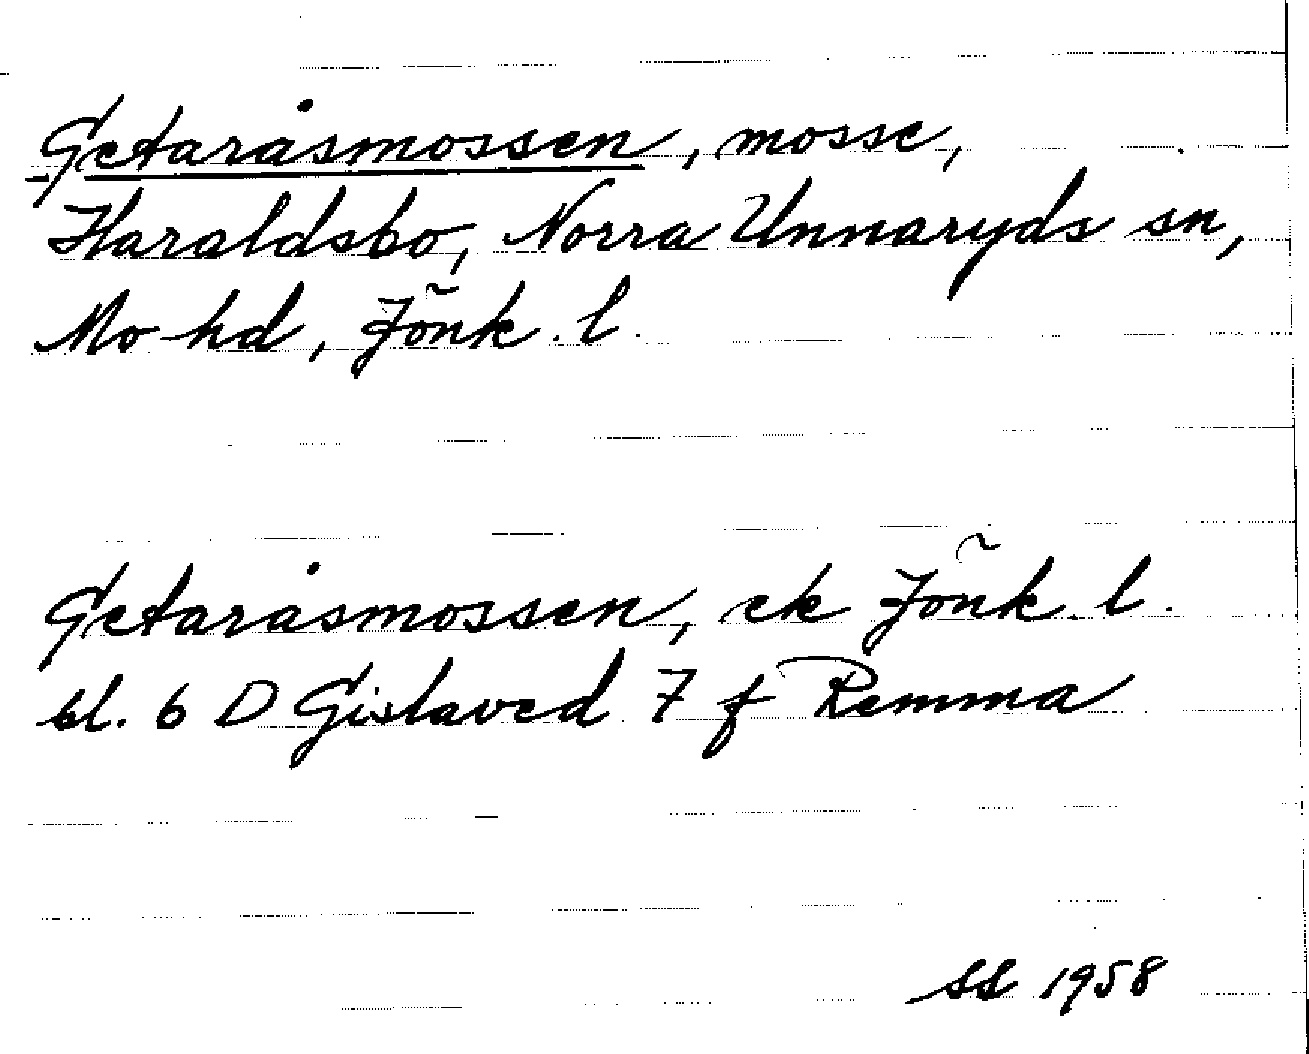 Getaråsmossen, mosse,
Haraldsbo, Norra Unnaryds sn,
Mo hd, Jönk. l.
Getaråsmossen, ek Jönk. l.
bl. 6 D Gislaved 7 f Remma
SS 1958